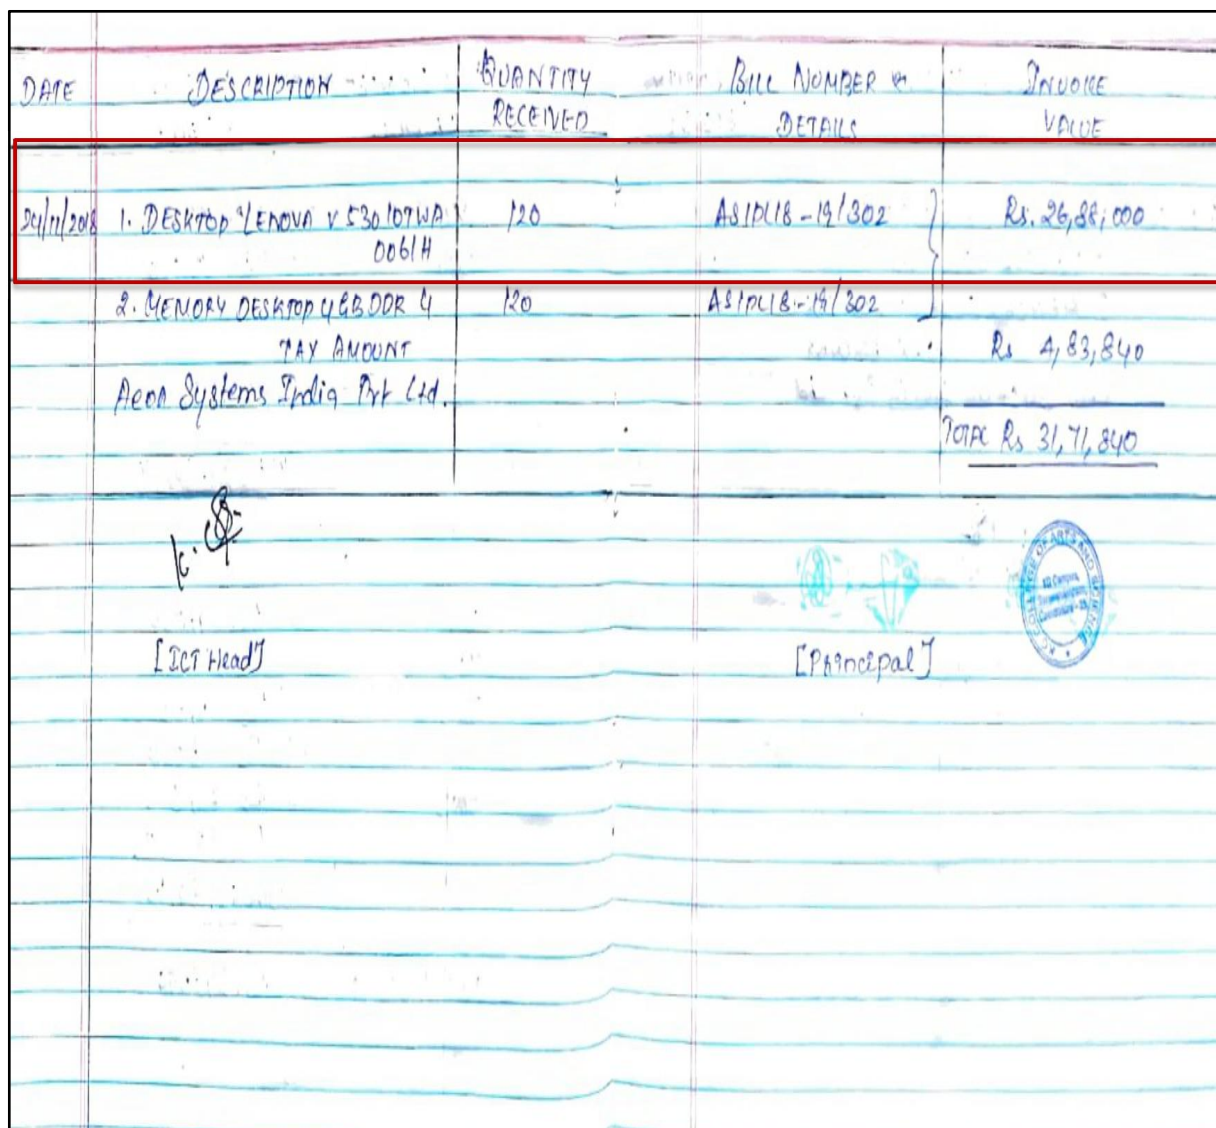 DATE DESCRIPTION QUANTITY RECEIVED BILL NUMBER & DETAILS INVOICE VALUE
24/11/2018 1. DESKTOP LENOVA V 530 10TWA 120 ASIPL18-19/302 Rs. 26,88,000
0061H
2. MEMORY DESKTOP 4GB DDR 4 120 ASIPL18-19/302
TAX AMOUNT Rs 4,83,840
Aeon Systems India Pvt Ltd.
TOTAL Rs 31,71,840
[ICT Head] [Principal]
KG COLLEGE OF ARTS AND SCIENCE
KG Campus,